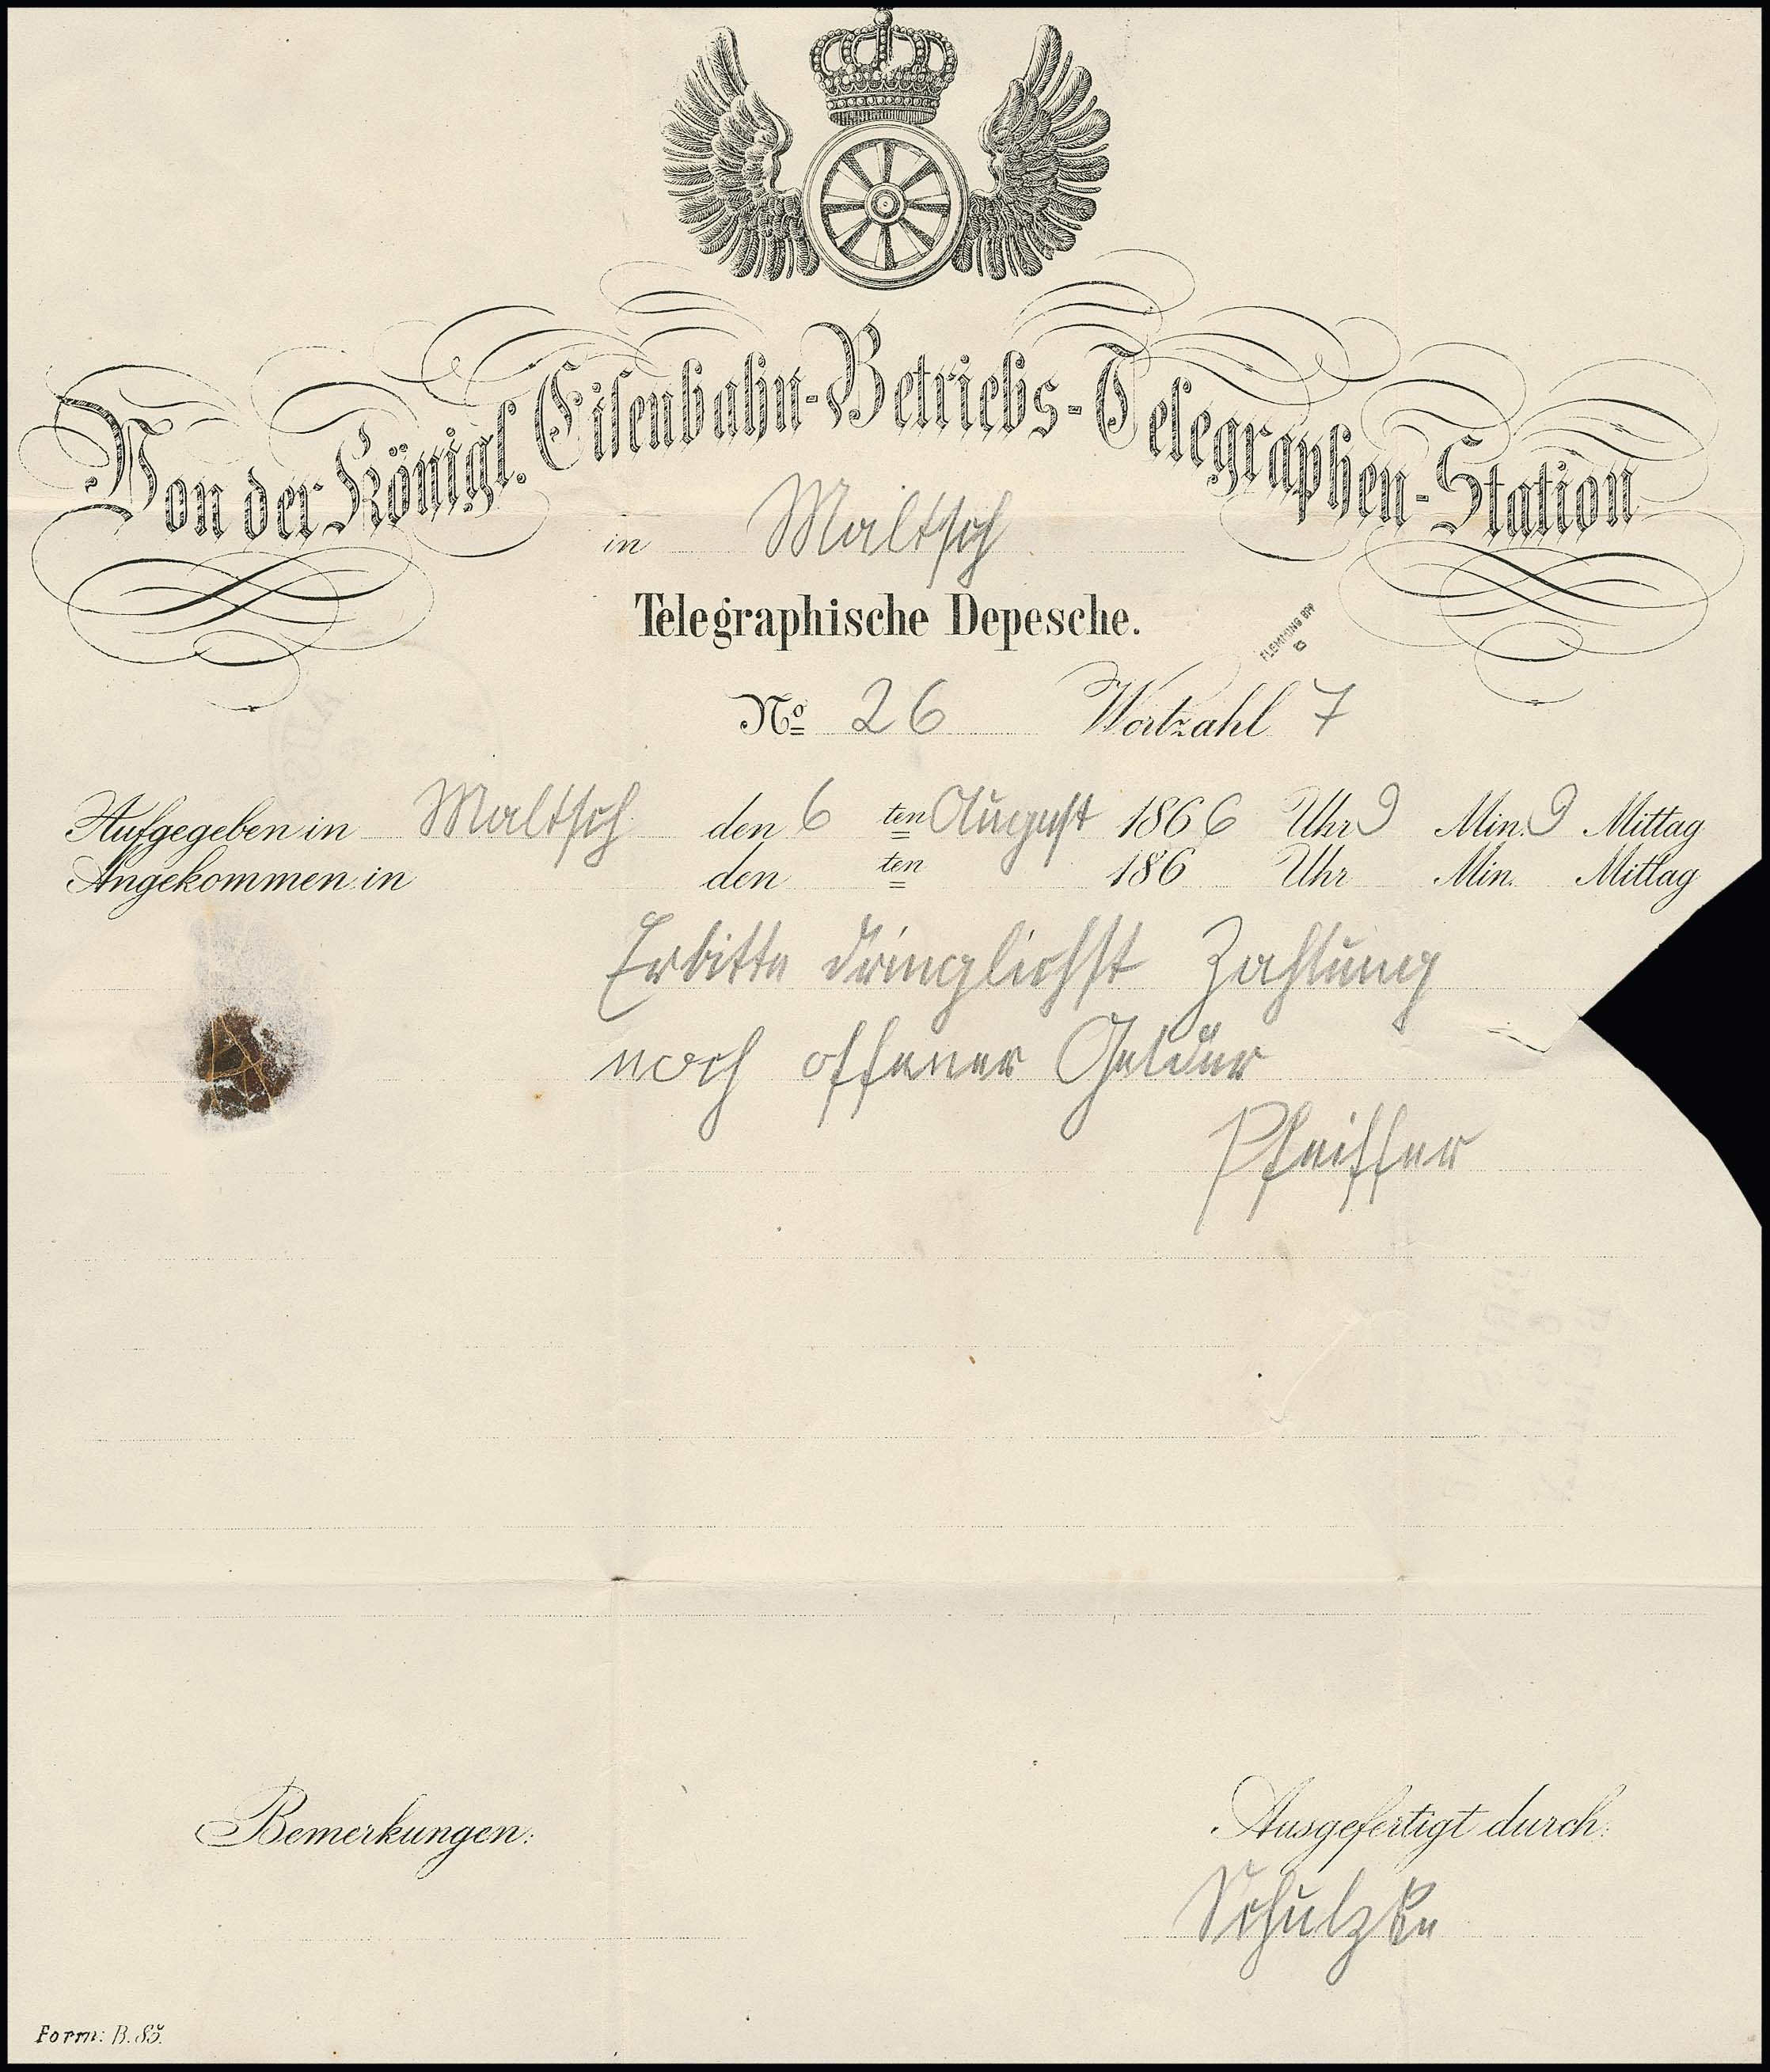 Von der Königl. Eisenbahn-Betriebs-Telegraphen-Station
in Maltsch
Telegraphische Depesche.
FLEMMING BPP
No 26 Wortzahl 7
Aufgegeben in Maltsch den 6 ten August 1866 Uhr 9 Min. 9 Mittag
Angekommen in den ten 186 Uhr Min. Mittag
Erbitte dringlichst Zahlung
noch offener Gelder
Pfeiffer
Bemerkungen:
Ausgefertigt durch:
Schulzke
Form: B. 85.